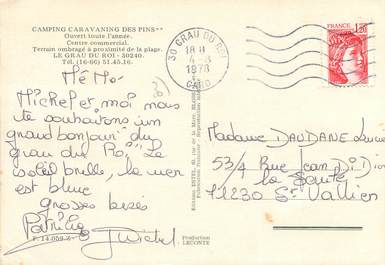 CAMPING CARAVANING DES PINS**
Ouvert toute l'année.
Centre commercial.
Terrain ombragé à proximité de la plage.
LE GRAU DU ROI - 30240.
Tél. (16-66) 51.45.16.
30 GRAU DU ROI
18 H
4-8
1978
GARD
FRANCE
1,20
MéMé.
Michel et moi nous
te souhaitons un
grand bonjour du
Grau du Roi. Le
soleil brille, la mer
est bleue
grosses bises
Patricia
Michel
Madame DAUDANE Lucie
53/4 Rue Jean
la Santé
St Vallier
F. 14.059 Z
Production
LECONTE